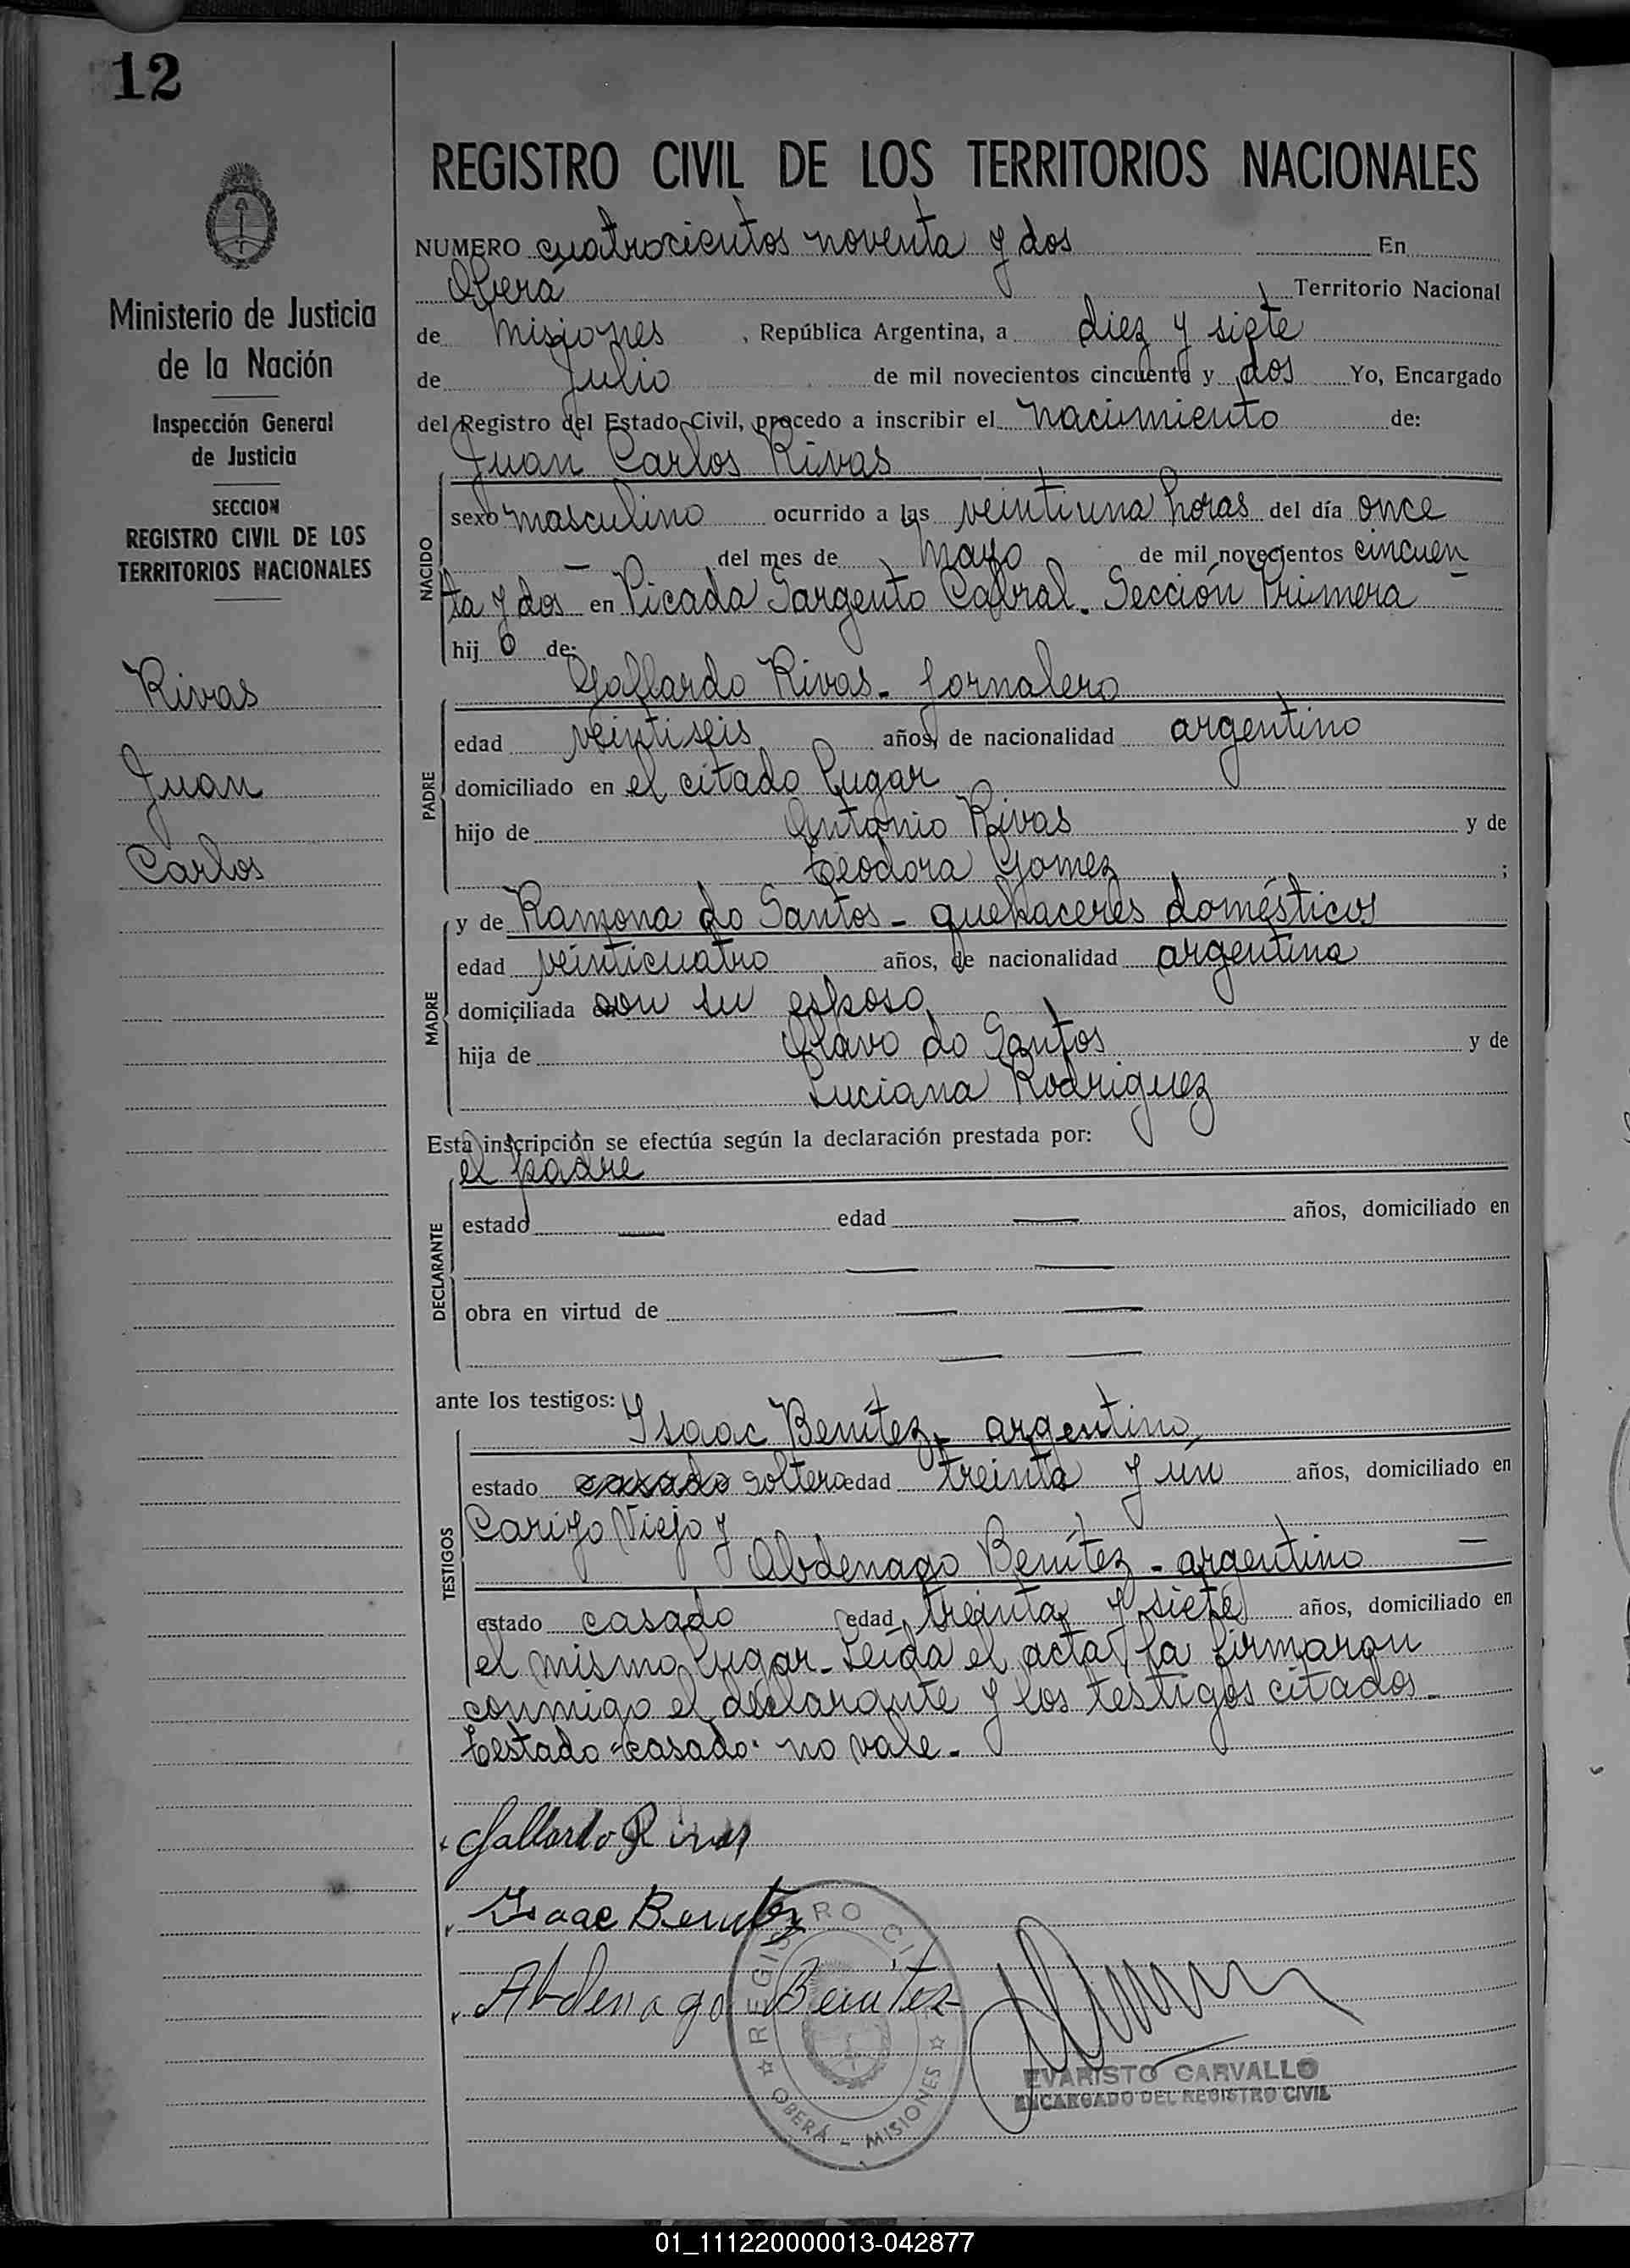 12
REGISTRO CIVIL DE LOS TERRITORIOS NACIONALES
NUMERO cuatrocientos noventa y dos En
Oberá Territorio Nacional
de Misiones, República Argentina, a diez y siete
de Julio de mil novecientos cincuenta y dos Yo, Encargado
del Registro del Estado Civil, procedo a inscribir el nacimiento de:
Juan Carlos Rivas
NACIDO
sexo masculino ocurrido a las veintiuna horas del día once
— del mes de Mayo de mil novecientos cincuen
ta y dos en Picada Sargento Cabral. Sección Primera
hij o de:
Gallardo Rivas - Jornalero
PADRE
edad veintiseis años, de nacionalidad argentino
domiciliado en el citado lugar
hijo de Antonio Rivas y de
Teodora Gomez ;
y de Ramona do Santos - quehaceres domésticos
MADRE
edad veinticuatro años, de nacionalidad argentina
domiciliada con su esposo
hija de Olavo do Santos y de
Luciana Rodriguez
Esta inscripción se efectúa según la declaración prestada por:
el padre
DECLARANTE
estado — edad — años, domiciliado en
— —
obra en virtud de — —
— —
ante los testigos:
Isaac Benítez - argentino
TESTIGOS
estado casado soltero edad treinta y un años, domiciliado en
Viejo y
Abdenago Benítez - argentino —
estado casado edad treinta y siete años, domiciliado en
el mismo lugar - Leída el acta, la firmaron
conmigo el declarante y los testigos citados -
Testado "casado" no vale -
Gallardo Rivas
Isaac Benitez
Abdenago Benitez
REGISTRO CIVIL
OBERÁ - MISIONES
EVARISTO CARVALLO
ENCARGADO DEL REGISTRO CIVIL
Ministerio de Justicia
de la Nación
Inspección General
de Justicia
SECCION
REGISTRO CIVIL DE LOS
TERRITORIOS NACIONALES
Rivas
Juan
Carlos
01_111220000013-042877